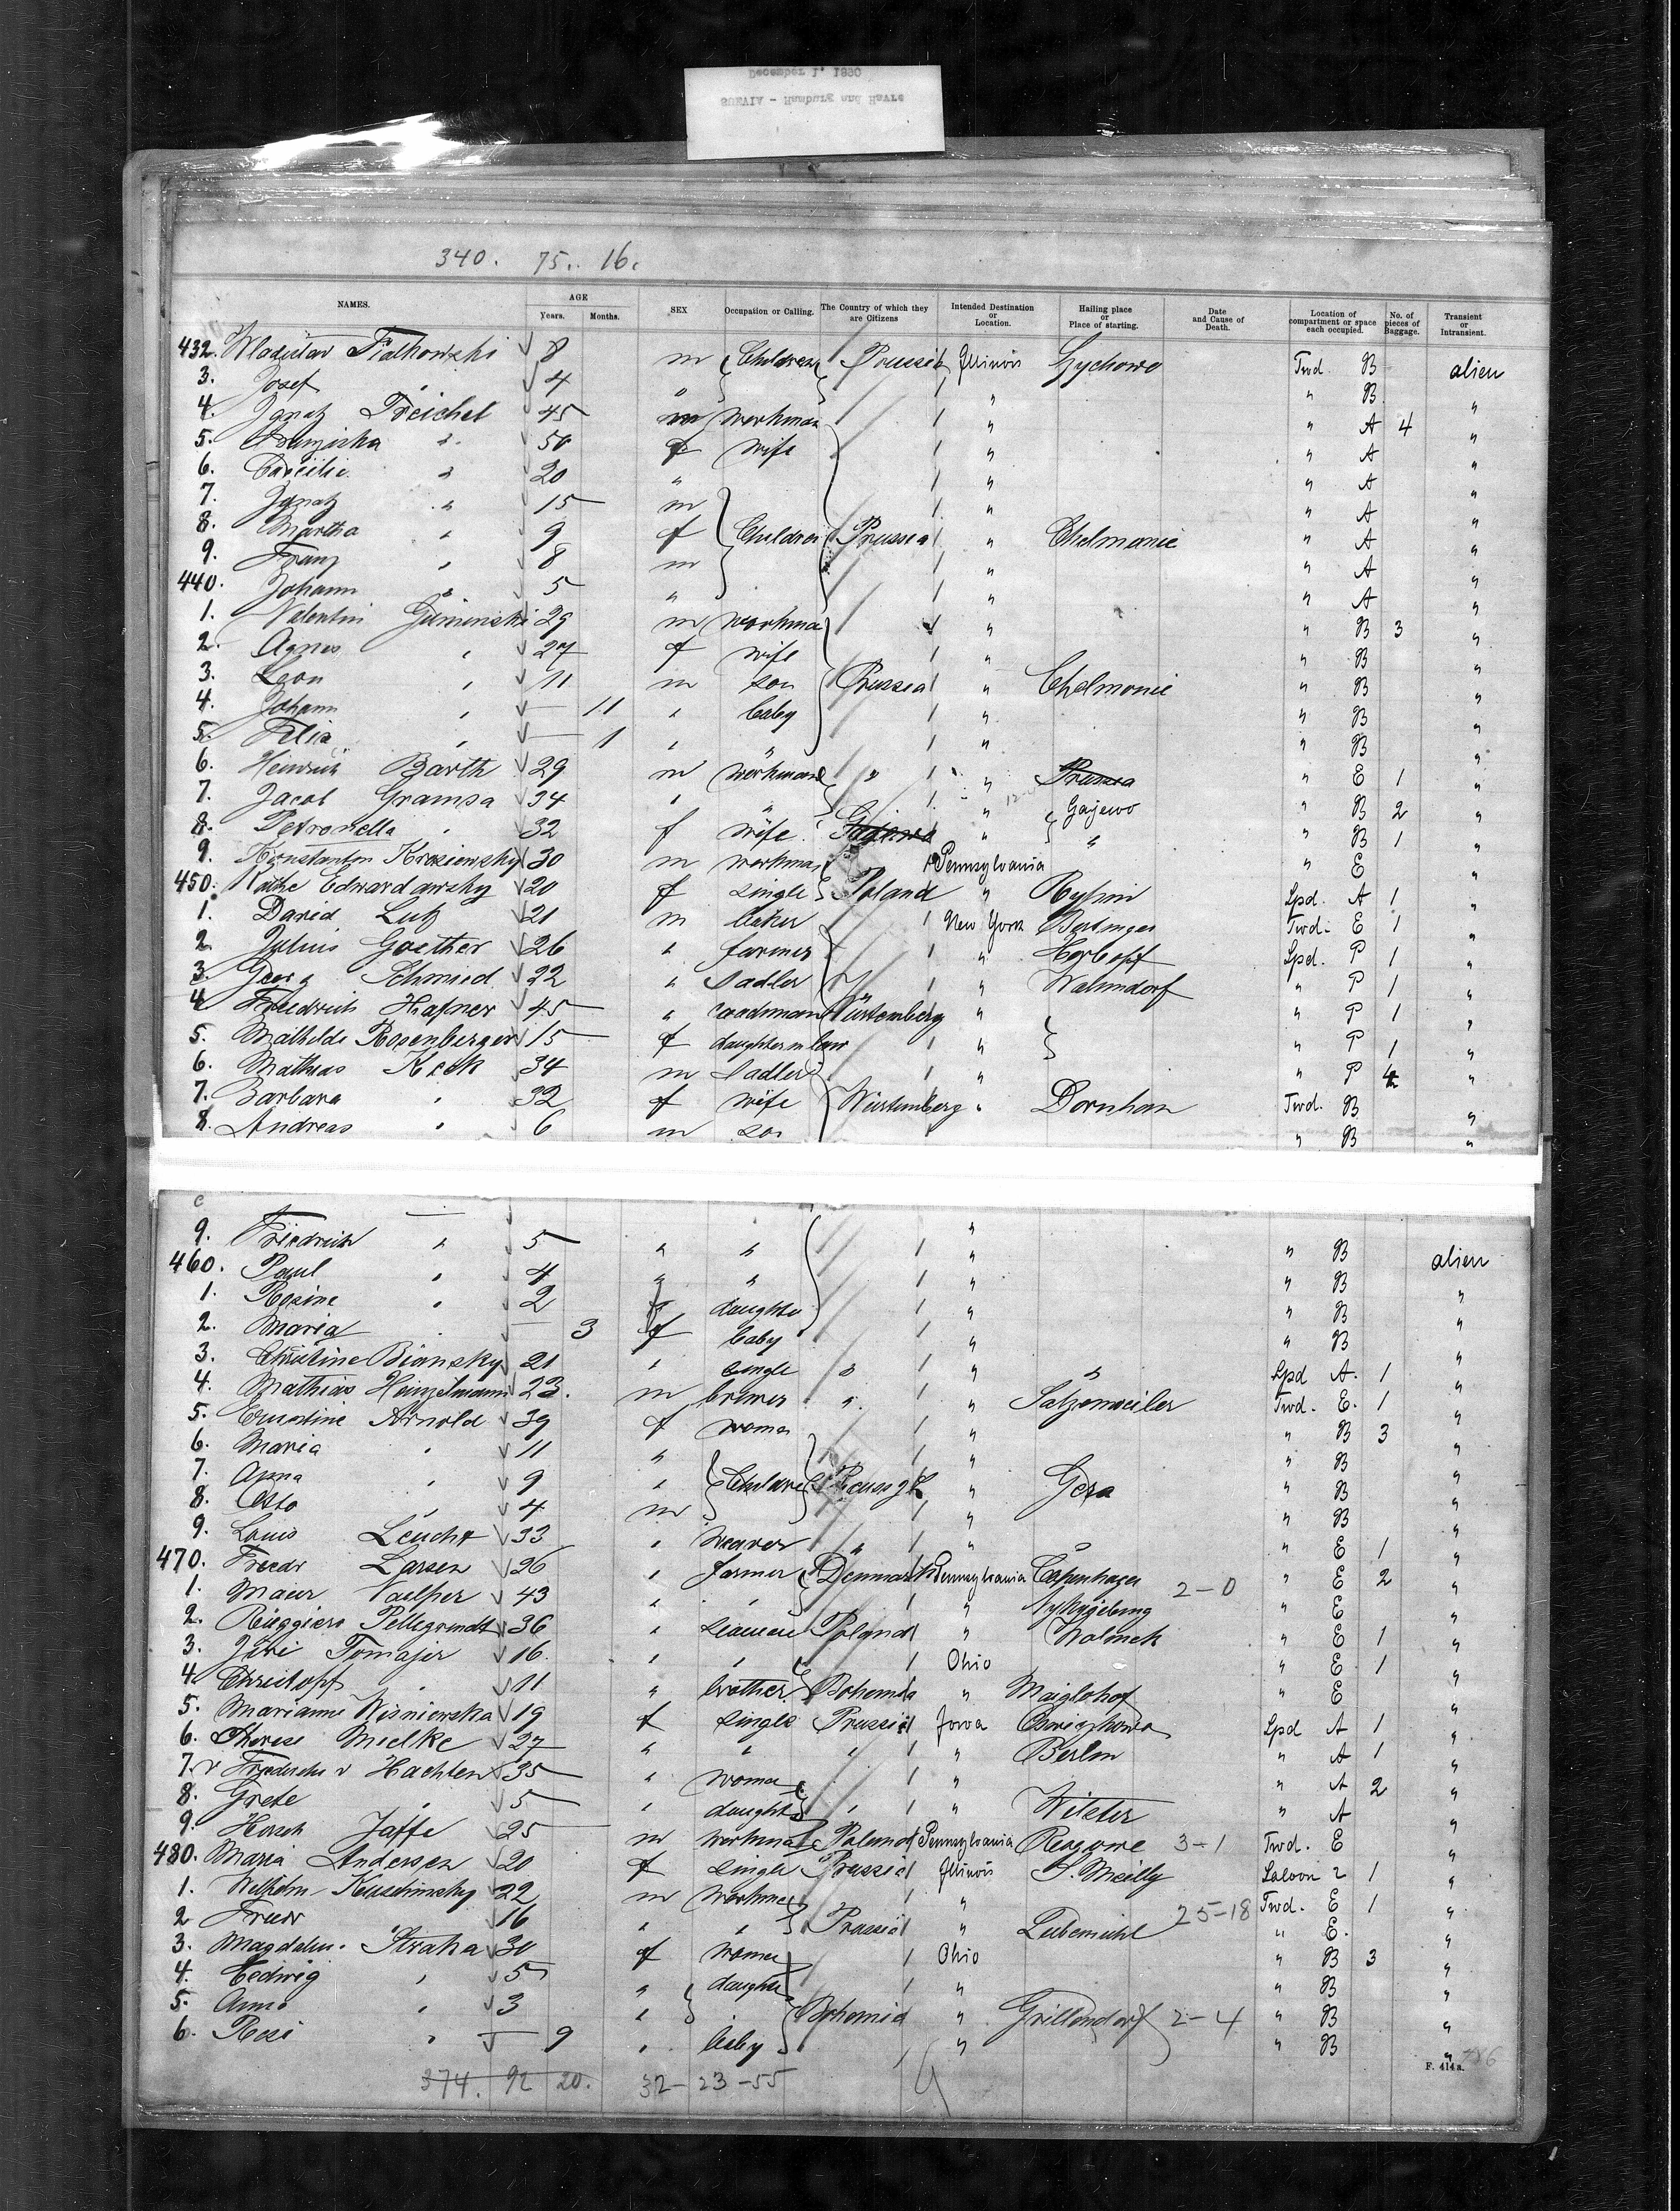 December 1, 1890
SUEVIA - Hamburg and Havre
340. 75. 16.
NAMES. AGE Years. Months. SEX Occupation or Calling. The Country of which they are Citizens Intended Destination or Location. Hailing place or Place of starting. Date and Cause of Death. Location of compartment or space each occupied. No. of pieces of Baggage. Transient or Intransient.
432. Wladislav Fialkowski 8 m Children Prussia Illinois Lychowo Twd. B alien
3. Josef " 4 " " " B "
4. Ignatz Treichel 45 m workman " " A 4 "
5. Franziska " 50 f wife " " A "
6. Cäcilie " 20 " " " A "
7. Ignatz " 15 m " " A "
8. Martha " 9 f Children Prussia " Chelmonie " A "
9. Franz " 8 m " " A "
440. Johann " 5 " " " A "
1. Valentin Giminski 29 m workman " " B 3 "
2. Agnes " 27 f wife " " B "
3. Leon " 11 m son Prussia " Chelmonie " B "
4. Johann " 11 " baby " " B "
5. Felix " 1 " " " " B "
6. Heinrich Barth 29 m workman " " Prussia " E 1 "
7. Jacob Gramsa 34 " " " Gajewo " B 2 "
8. Petronella " 32 f wife Gajewo " " " B 1 "
9. Konstantin Krosiewsky 30 m workman Pennsylvania " E "
450. Käthe Edwardawsky 20 f single Poland " Rypin Spd. A 1 "
1. David Lutz 21 m baker New York Twd. E 1 "
2. Julius Goether 26 " farmer " Spd. P 1 "
3. Georg Schmied 22 " Sadler " Walmdorf " P 1 "
4. Friedrich Hafner 45 " coachman Würtemberg " " P 1 "
5. Mathilde Rosenberger 15 f daughter in law " " P 1 "
6. Mathias Keck 34 m Sadler " " P 4 "
7. Barbara " 32 f wife Würtemberg " Dornhan Twd. B "
8. Andreas " 6 m son " B "
9. Friedrich " 5 " " " " B alien
460. Paul " 4 " " " " B "
1. Rosine " 2 f daughter " " B "
2. Maria " 3 f baby " " B "
3. Christine Biansky 21 " single " " " Spd A. 1 "
4. Mathias Heinzelmann 23. m brewer " " Salzenweiler Twd. E. 1 "
5. Ernestine Arnold 39 f woman " " B 3 "
6. Maria " 11 " " " B "
7. Anna " 9 " Children Reuss j L " Gera " B "
8. Otto " 4 m " " B "
9. Louis Leucht 33 " weaver " " " " E 1 "
470. Friedr Larsen 26 " farmer Denmark Pennsylvania Copenhagen 2-0 " E 2 "
1. Maier Vaelper 43 " " " " E "
2. Ruggiero Pellegrindt 36 " Poland " " E 1 "
3. Jöri Tomajer 16. " " Ohio " E 1 "
4. Christopf " 11 " brother Bohemia " Maiglohof " E "
5. Marianne Wisniewska 19 f single Prussia Iowa Spd A 1 "
6. Therese Mielke 27 " " " " Berlin " A 1 "
7. v Friedericke v Hachten 35 " woman " " A 2 "
8. Grete 5 " daughter " " Wilster " A "
9. Hersch Jaffe 25 m workman Poland Pennsylvania Rogowe 3-1 Twd. E "
480. Maria Andersen 20 f single Prussia Illinois Saloon 2 1 "
1. Wilhelm Kuschinsky 22 m workman " 25-18 Twd. E 1 "
2 Friedr " 16 " " Prussia " Liebemühl " E. "
3. Magdalen. Straka 30 f woman Ohio " B 3 "
4. Hedwig " 5 " daughter " " B "
5. Anna " 3 " Bohemia " Grillendorf 2-4 " B "
6. Resi " 9 " baby " " B "
374. 92 20. 32-23-55
F. 414a. 486